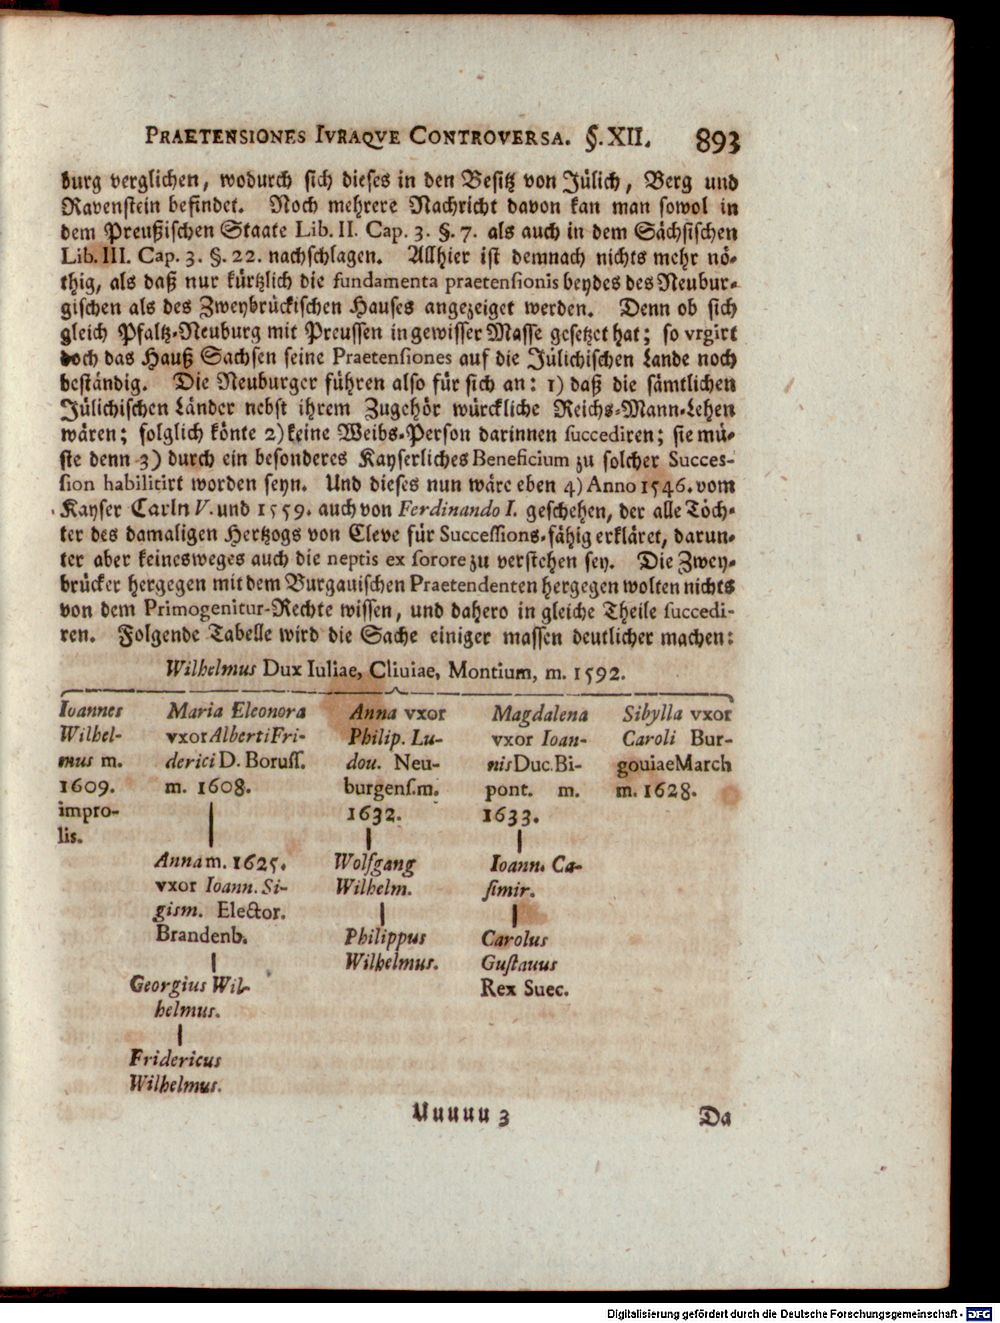 PRAETENSIONES IVRAQVE CONTROVERSA. §. XII. 893
burg verglichen, wodurch sich dieses in den Besitz von Jülich, Berg und
Ravenstein befindet. Noch mehrere Nachricht davon kan man sowol in
dem Preußischen Staate Lib. II. Cap. 3. §. 7. als auch in dem Sächsischen
Lib. III. Cap. 3. §. 22. nachschlagen. Allhier ist demnach nichts mehr nö-
thig, als daß nur kürtzlich die fundamenta praetensionis beydes des Neubur-
gischen als des Zweybrückischen Hauses angezeiget werden. Denn ob sich
gleich Pfaltz-Neuburg mit Preussen in gewisser Masse gesetzet hat; so vrgirt
doch das Hauß Sachsen seine Praetensiones auf die Jülichischen Lande noch
beständig. Die Neuburger führen also für sich an: 1) daß die sämtlichen
Jülichischen Länder nebst ihrem Zugehör würckliche Reichs-Mann-Lehen
wären; folglich könte 2) keine Weibs-Person darinnen succediren; sie mü-
ste denn 3) durch ein besonderes Kayserliches Beneficium zu solcher Succes-
sion habilitirt worden seyn. Und dieses nun wäre eben 4) Anno 1546. vom
Kayser Carln V. und 1559. auch von Ferdinando I. geschehen, der alle Töch-
ter des damaligen Hertzogs von Cleve für Successions-fähig erkläret, darun-
ter aber keinesweges auch die neptis ex sorore zu verstehen sey. Die Zwey-
brücker hergegen mit dem Burgauischen Praetendenten hergegen wolten nichts
von dem Primogenitur-Rechte wissen, und dahero in gleiche Theile succedi-
ren. Folgende Tabelle wird die Sache einiger massen deutlicher machen:
Wilhelmus Dux Iuliae, Cliuiae, Montium, m. 1592.
Ioannes
Wilhel-
mus m.
1609.
impro-
lis.
Maria Eleonora
vxor Alberti Fri-
derici D. Boruss.
m. 1608.
Anna m. 1625.
vxor Ioann. Si-
gism. Elector.
Brandenb.
Georgius Wil-
helmus.
Fridericus
Wilhelmus.
Anna vxor
Philip. Lu-
dou. Neu-
burgens. m.
1632.
Wolfgang
Wilhelm.
Philippus
Wilhelmus.
Magdalena
vxor Ioan-
nis Duc. Bi-
pont. m.
1633.
Ioann. Ca-
simir.
Carolus
Gustauus
Rex Suec.
Sibylla vxor
Caroli Bur-
gouiae March
m. 1628.
Uuuuu 3 Da
Digitalisierung gefördert durch die Deutsche Forschungsgemeinschaft - DFG